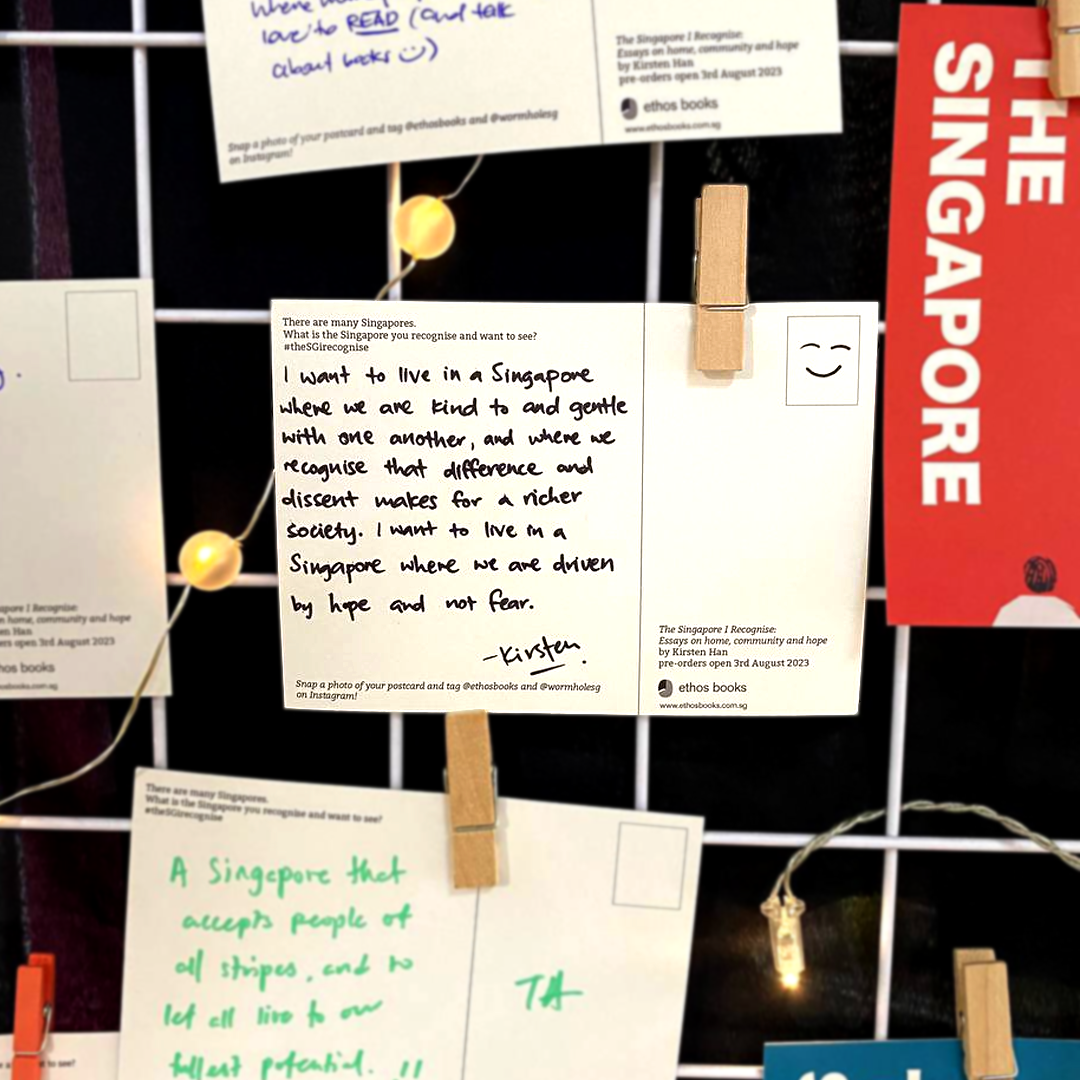 love to READ (and talk
about books :)
Snap a photo of your postcard and tag @ethosbooks and @wormholesg
on Instagram!
The Singapore I Recognise:
Essays on home, community and hope
by Kirsten Han
pre-orders open 3rd August 2023
ethos books
www.ethosbooks.com.sg
THE
SINGAPORE
There are many Singapores.
What is the Singapore you recognise and want to see?
#theSGirecognise
I want to live in a Singapore
where we are kind to and gentle
with one another, and where we
recognise that difference and
dissent makes for a richer
society. I want to live in a
Singapore where we are driven
by hope and not fear.
-Kirsten.
Snap a photo of your postcard and tag @ethosbooks and @wormholesg
on Instagram!
The Singapore I Recognise:
Essays on home, community and hope
by Kirsten Han
pre-orders open 3rd August 2023
ethos books
www.ethosbooks.com.sg
I Recognise:
home, community and hope
Han
open 3rd August 2023
books
There are many Singapores.
What is the Singapore you recognise and want to see?
#theSGirecognise
A Singapore that
accepts people of
all stripes, and to
let all live to our
fullest potential. !!
TA
to see?